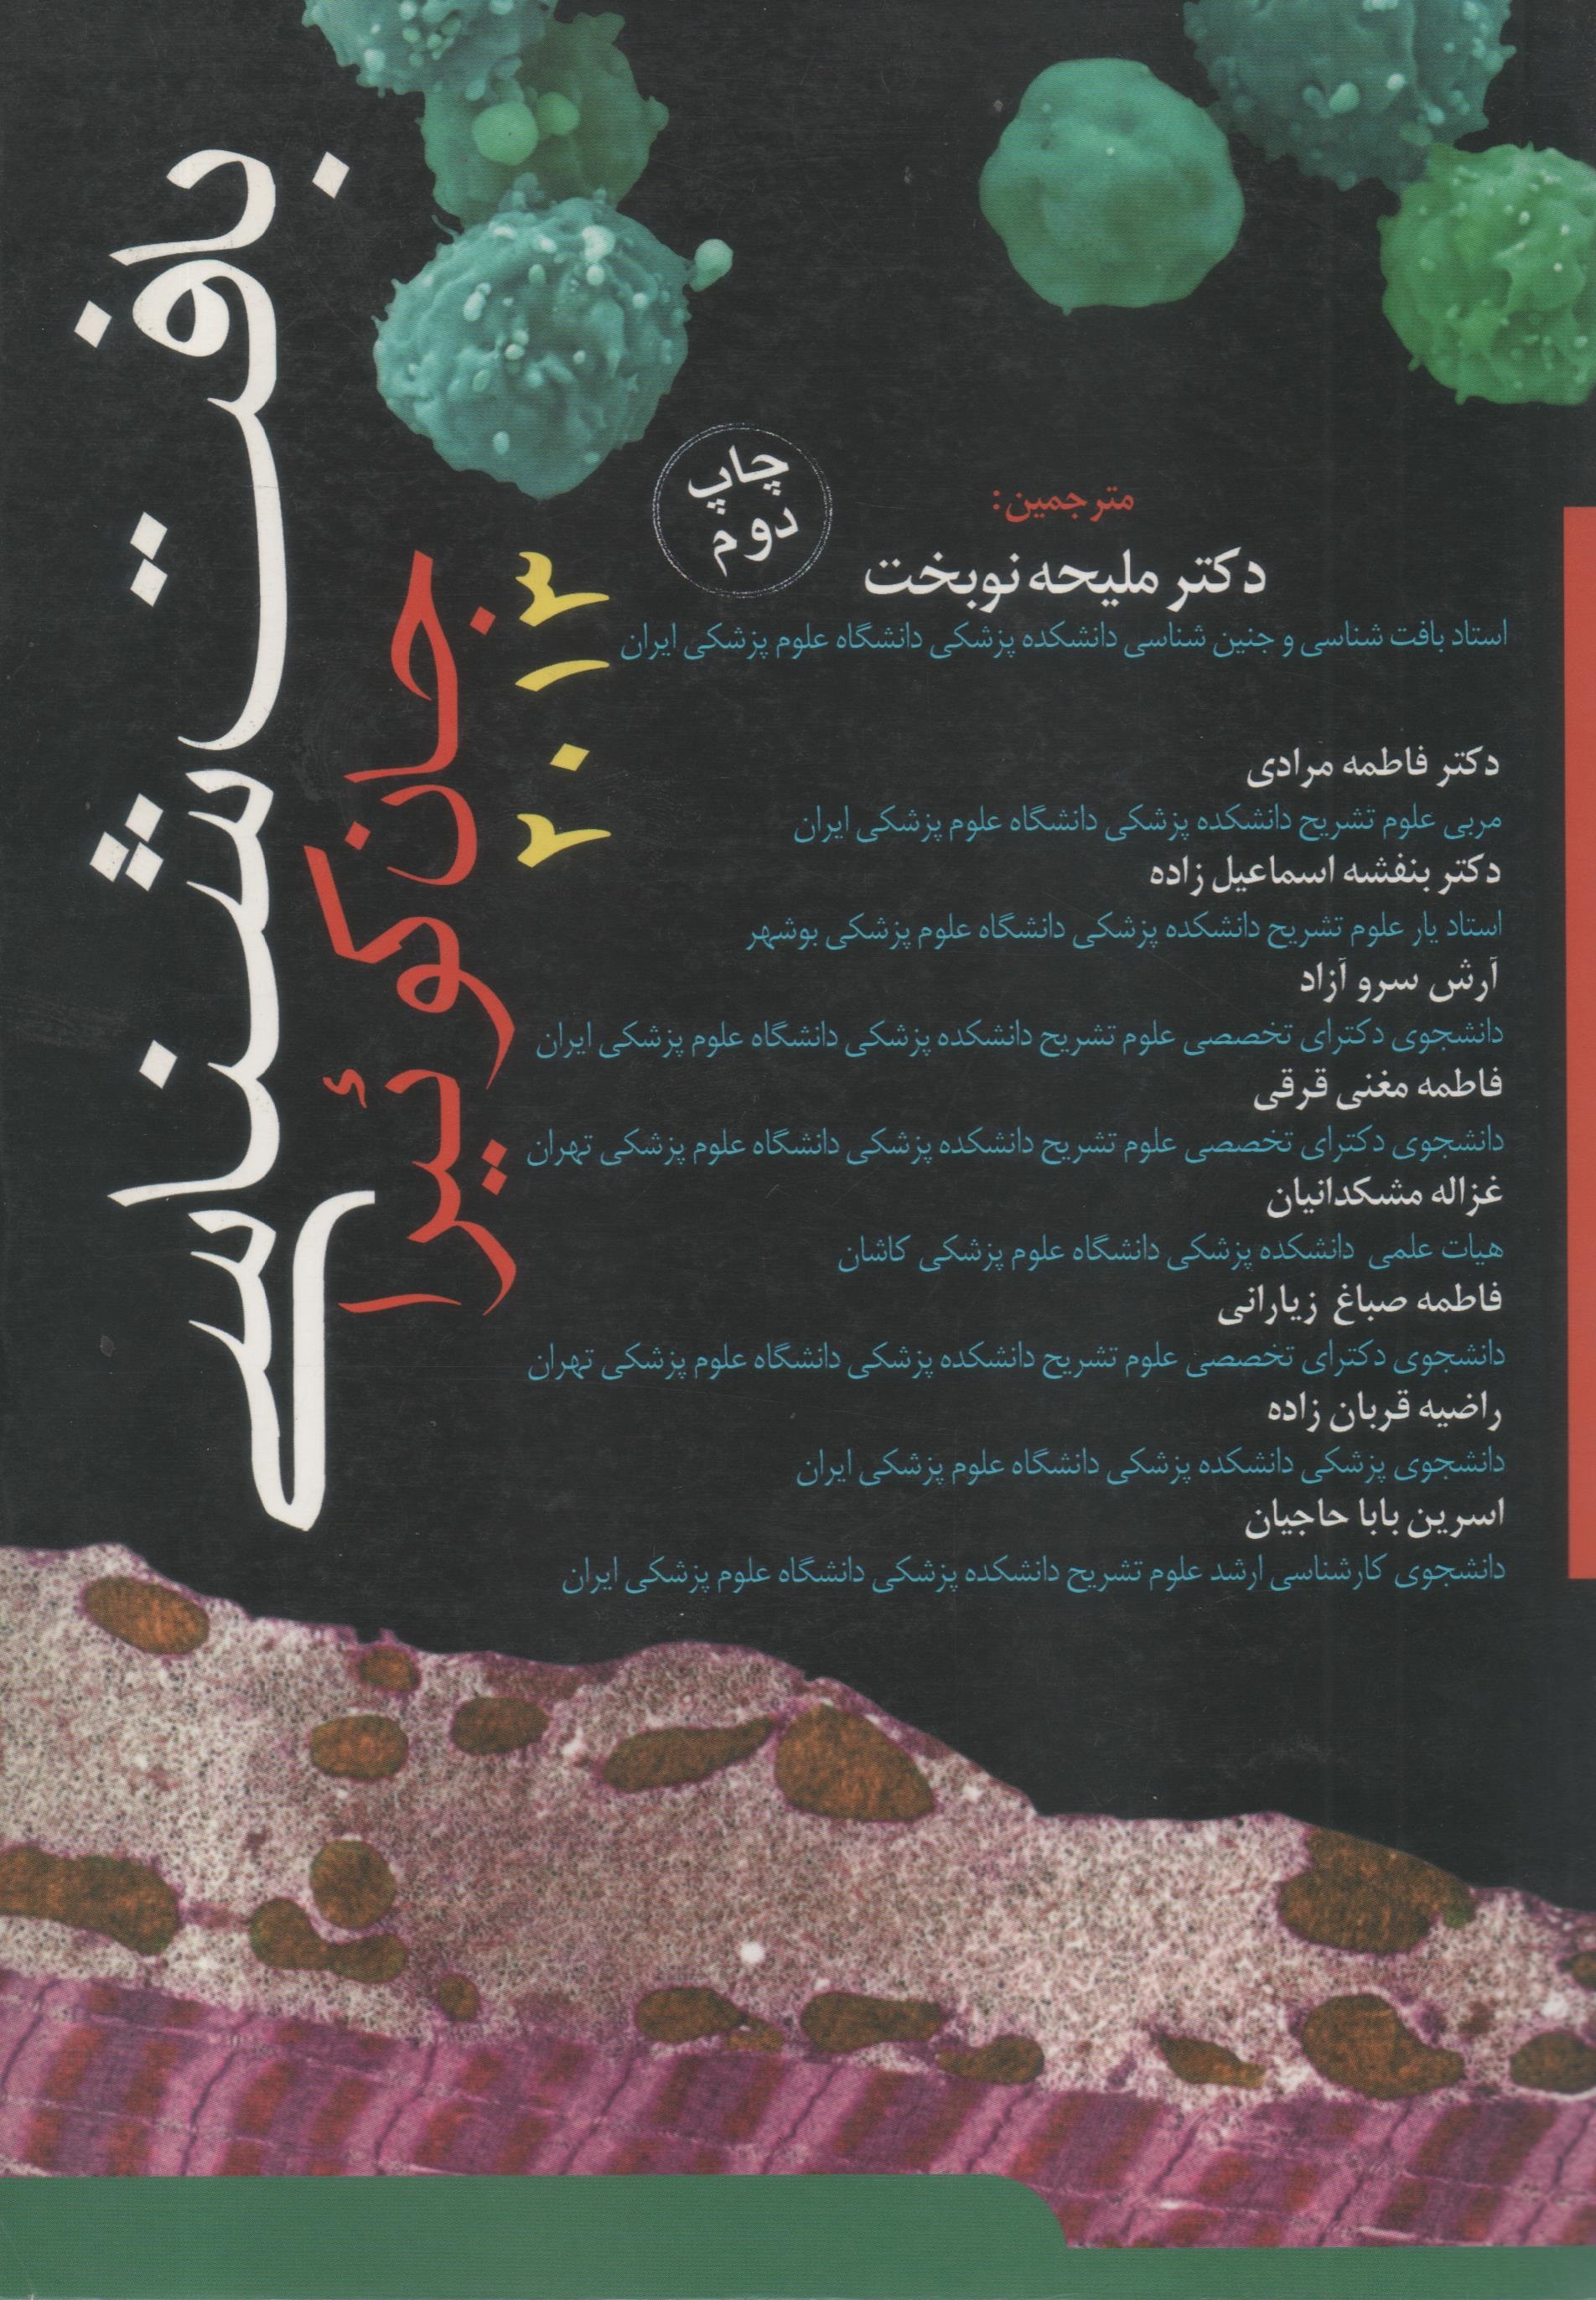 بافت شناسی
جان کوئیرا
۲۰۱۳
چاپ
دوم
مترجمین:
دکتر ملیحه نوبخت
استاد بافت شناسی و جنین شناسی دانشکده پزشکی دانشگاه علوم پزشکی ایران
دکتر فاطمه مرادی
مربی علوم تشریح دانشکده پزشکی دانشگاه علوم پزشکی ایران
دکتر بنفشه اسماعیل زاده
استاد یار علوم تشریح دانشکده پزشکی دانشگاه علوم پزشکی بوشهر
آرش سرو آزاد
دانشجوی دکترای تخصصی علوم تشریح دانشکده پزشکی دانشگاه علوم پزشکی ایران
فاطمه مغنی قرقی
دانشجوی دکترای تخصصی علوم تشریح دانشکده پزشکی دانشگاه علوم پزشکی تهران
غزاله مشکدانیان
هیات علمی دانشکده پزشکی دانشگاه علوم پزشکی کاشان
فاطمه صباغ زیارانی
دانشجوی دکترای تخصصی علوم تشریح دانشکده پزشکی دانشگاه علوم پزشکی تهران
راضیه قربان زاده
دانشجوی پزشکی دانشکده پزشکی دانشگاه علوم پزشکی ایران
اسرین بابا حاجیان
دانشجوی کارشناسی ارشد علوم تشریح دانشکده پزشکی دانشگاه علوم پزشکی ایران